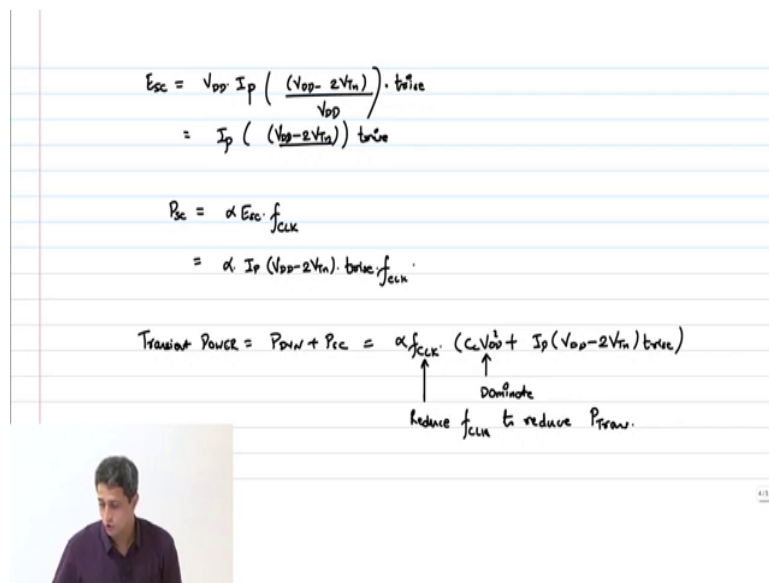 Esc = VDD. Ip ( (VDD - 2VTn) / VDD ) . trise
= Ip ( (VDD-2VTn) ) trise
Psc = α Esc. fCLK
= α. Ip (VDD-2VTn). trise. fCLK.
Transient POWER = PDYN + PSC = α fCLK. (CL VDD² + Ip (VDD-2VTn) trise)
↑ ↑
Dominate
Reduce fCLK to reduce PTran.